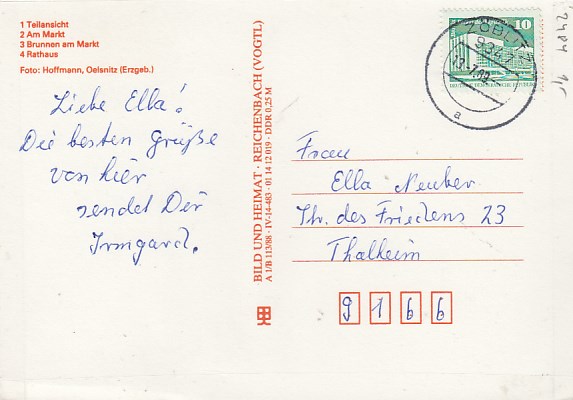 1 Teilansicht
2 Am Markt
3 Brunnen am Markt
4 Rathaus
Foto: Hoffmann, Oelsnitz (Erzgeb.)
Liebe Ella!
Die besten Grüße
von hier
sendet Dir
Irmgard.
BILD UND HEIMAT · REICHENBACH (VOGTL)
A 1/B 113/88 · IV-14-483 · 01 14 12 019 · DDR 0,25 M
10
ZÖBLITZ
a
2484
Frau
Ella Neuber
Str. des Friedens 23
Thalheim
9166